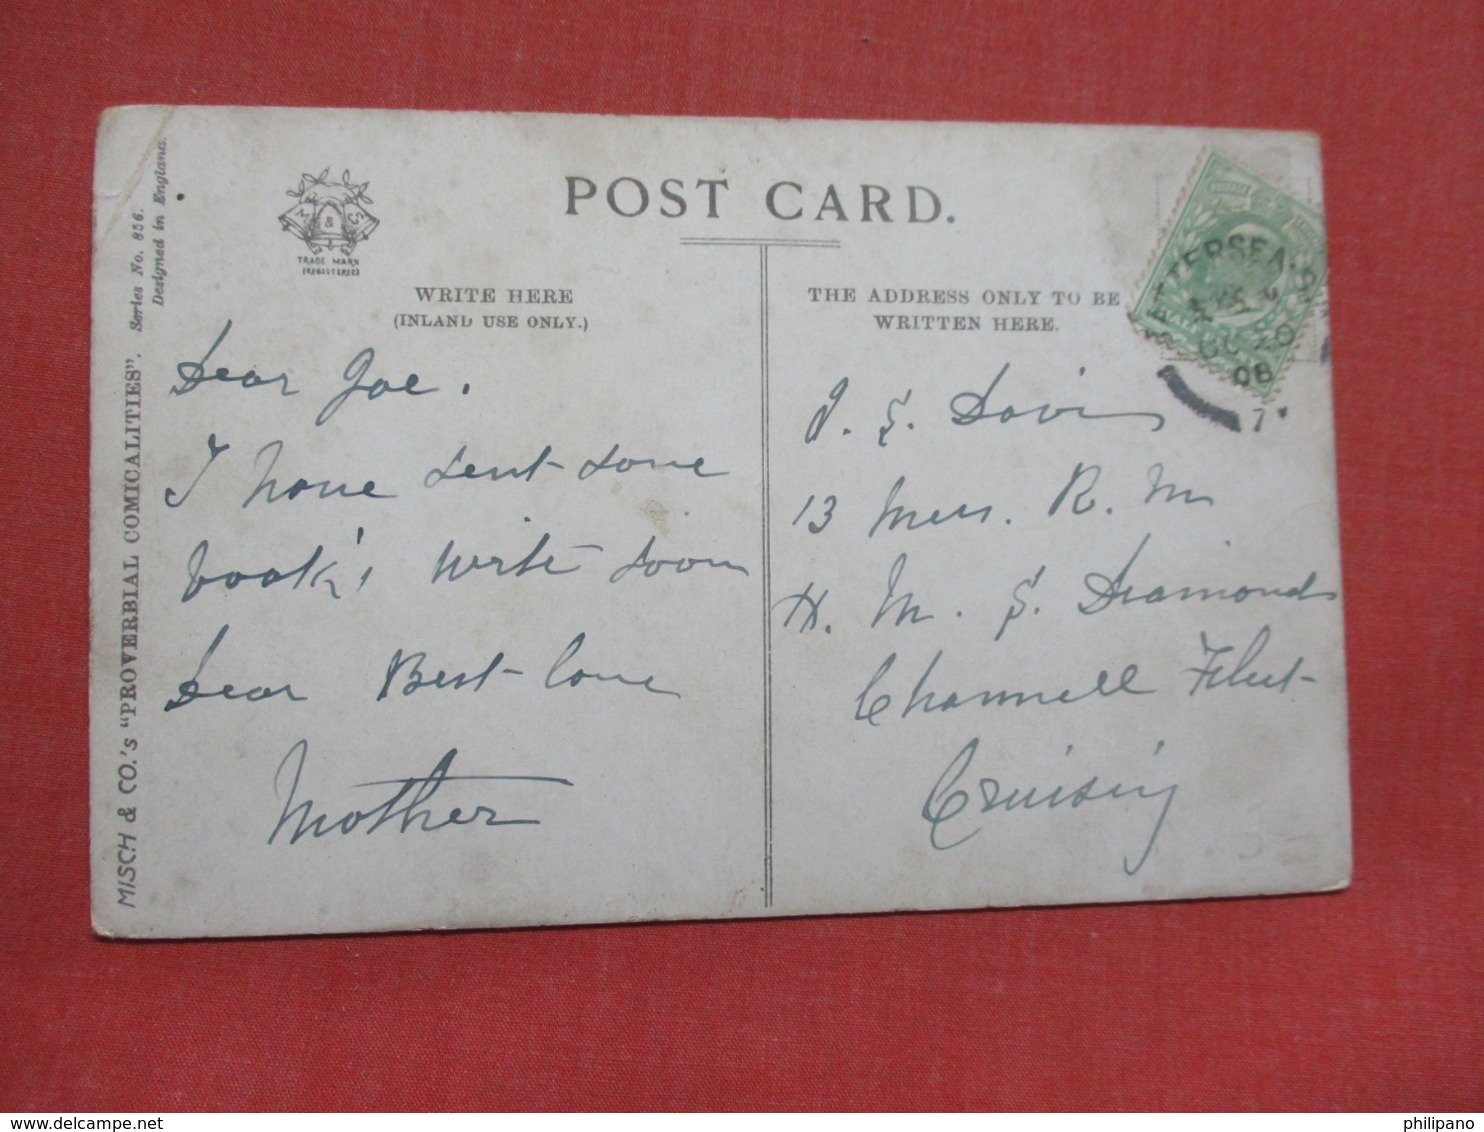 POST CARD.
M. & Co.
TRADE MARK
(REGISTERED)
WRITE HERE
(INLAND USE ONLY.)
THE ADDRESS ONLY TO BE
WRITTEN HERE.
MISCH & CO.'s "PROVERBIAL COMICALITIES". Series No. 856.
Designed in England.
Dear Joe.
I have sent some
book's, write soon
Dear Best love
Mother
J. S. Davis
13 Mess. R. M
H. M. S. Diamond
Channell Fleet
Cruising
BATTERSEA. S.W
OC 20
08
7
philipano